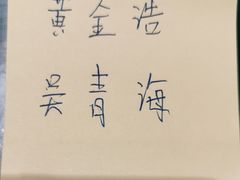 黄全浩
吴青海